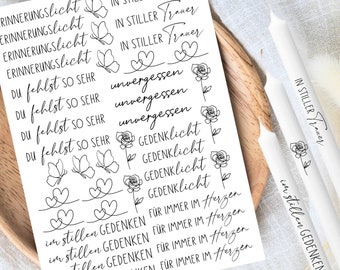 ERINNERUNGSlicht
ERINNERUNGSlicht
ERINNERUNGSlicht
DU fehlst SO SEHR
DU fehlst SO SEHR
DU fehlst SO SEHR
DU fehlst SO SEHR
im stillen GEDENKEN
im stillen GEDENKEN
IN STILLER Trauer
IN STILLER Trauer
unvergessen
unvergessen
unvergessen
GEDENKlicht
GEDENKlicht
GEDENKlicht
FÜR IMMER IM Herzen
FÜR IMMER IM Herzen
FÜR IMMER IM Herzen
IN STILLER Trauer
im stillen GEDENKEN